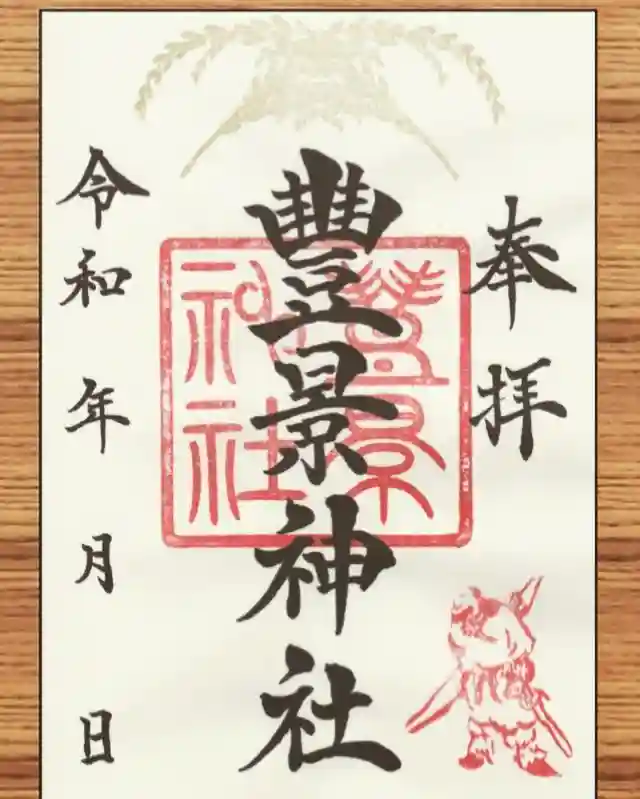 奉拝
豐景神社
令和 年 月 日
豐景神社